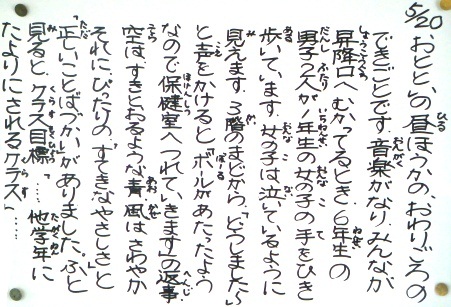 5/20 おとといの昼ほうかの、おわりごろの
できごとです。音楽がなり、みんなが
昇降口へむかってるとき、6年生の
男子2人が1年生の女の子の手をひき
歩いています。女の子は泣いているように
見えます。3階のまどから、「どうしました〜」
と声をかけると、「ボールがあたったよう
なので保健室へつれていきます」の返事
空は、すきとおるような青、風はさわやか
それに、ぴったりの「すてきなやさしさ」と
「正しいことばづかい」がありました。ふと
見ると、クラス目標「……他学年に
たよりにされるクラス」……